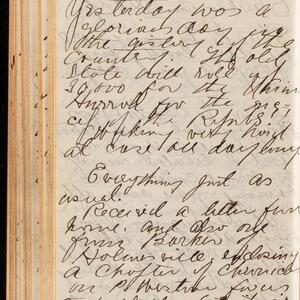 Yesterday was a
glorious day in
the history of the
country. The old
State will roll up
30,000 for the Union
Hurrah for the
of the Repts!!
Working very hard
at case all day long
Everything just as
usual.
Received a letter from
home, and also one
from Barker
Holmesville, enclosing
a Chapter of Chronicles
on